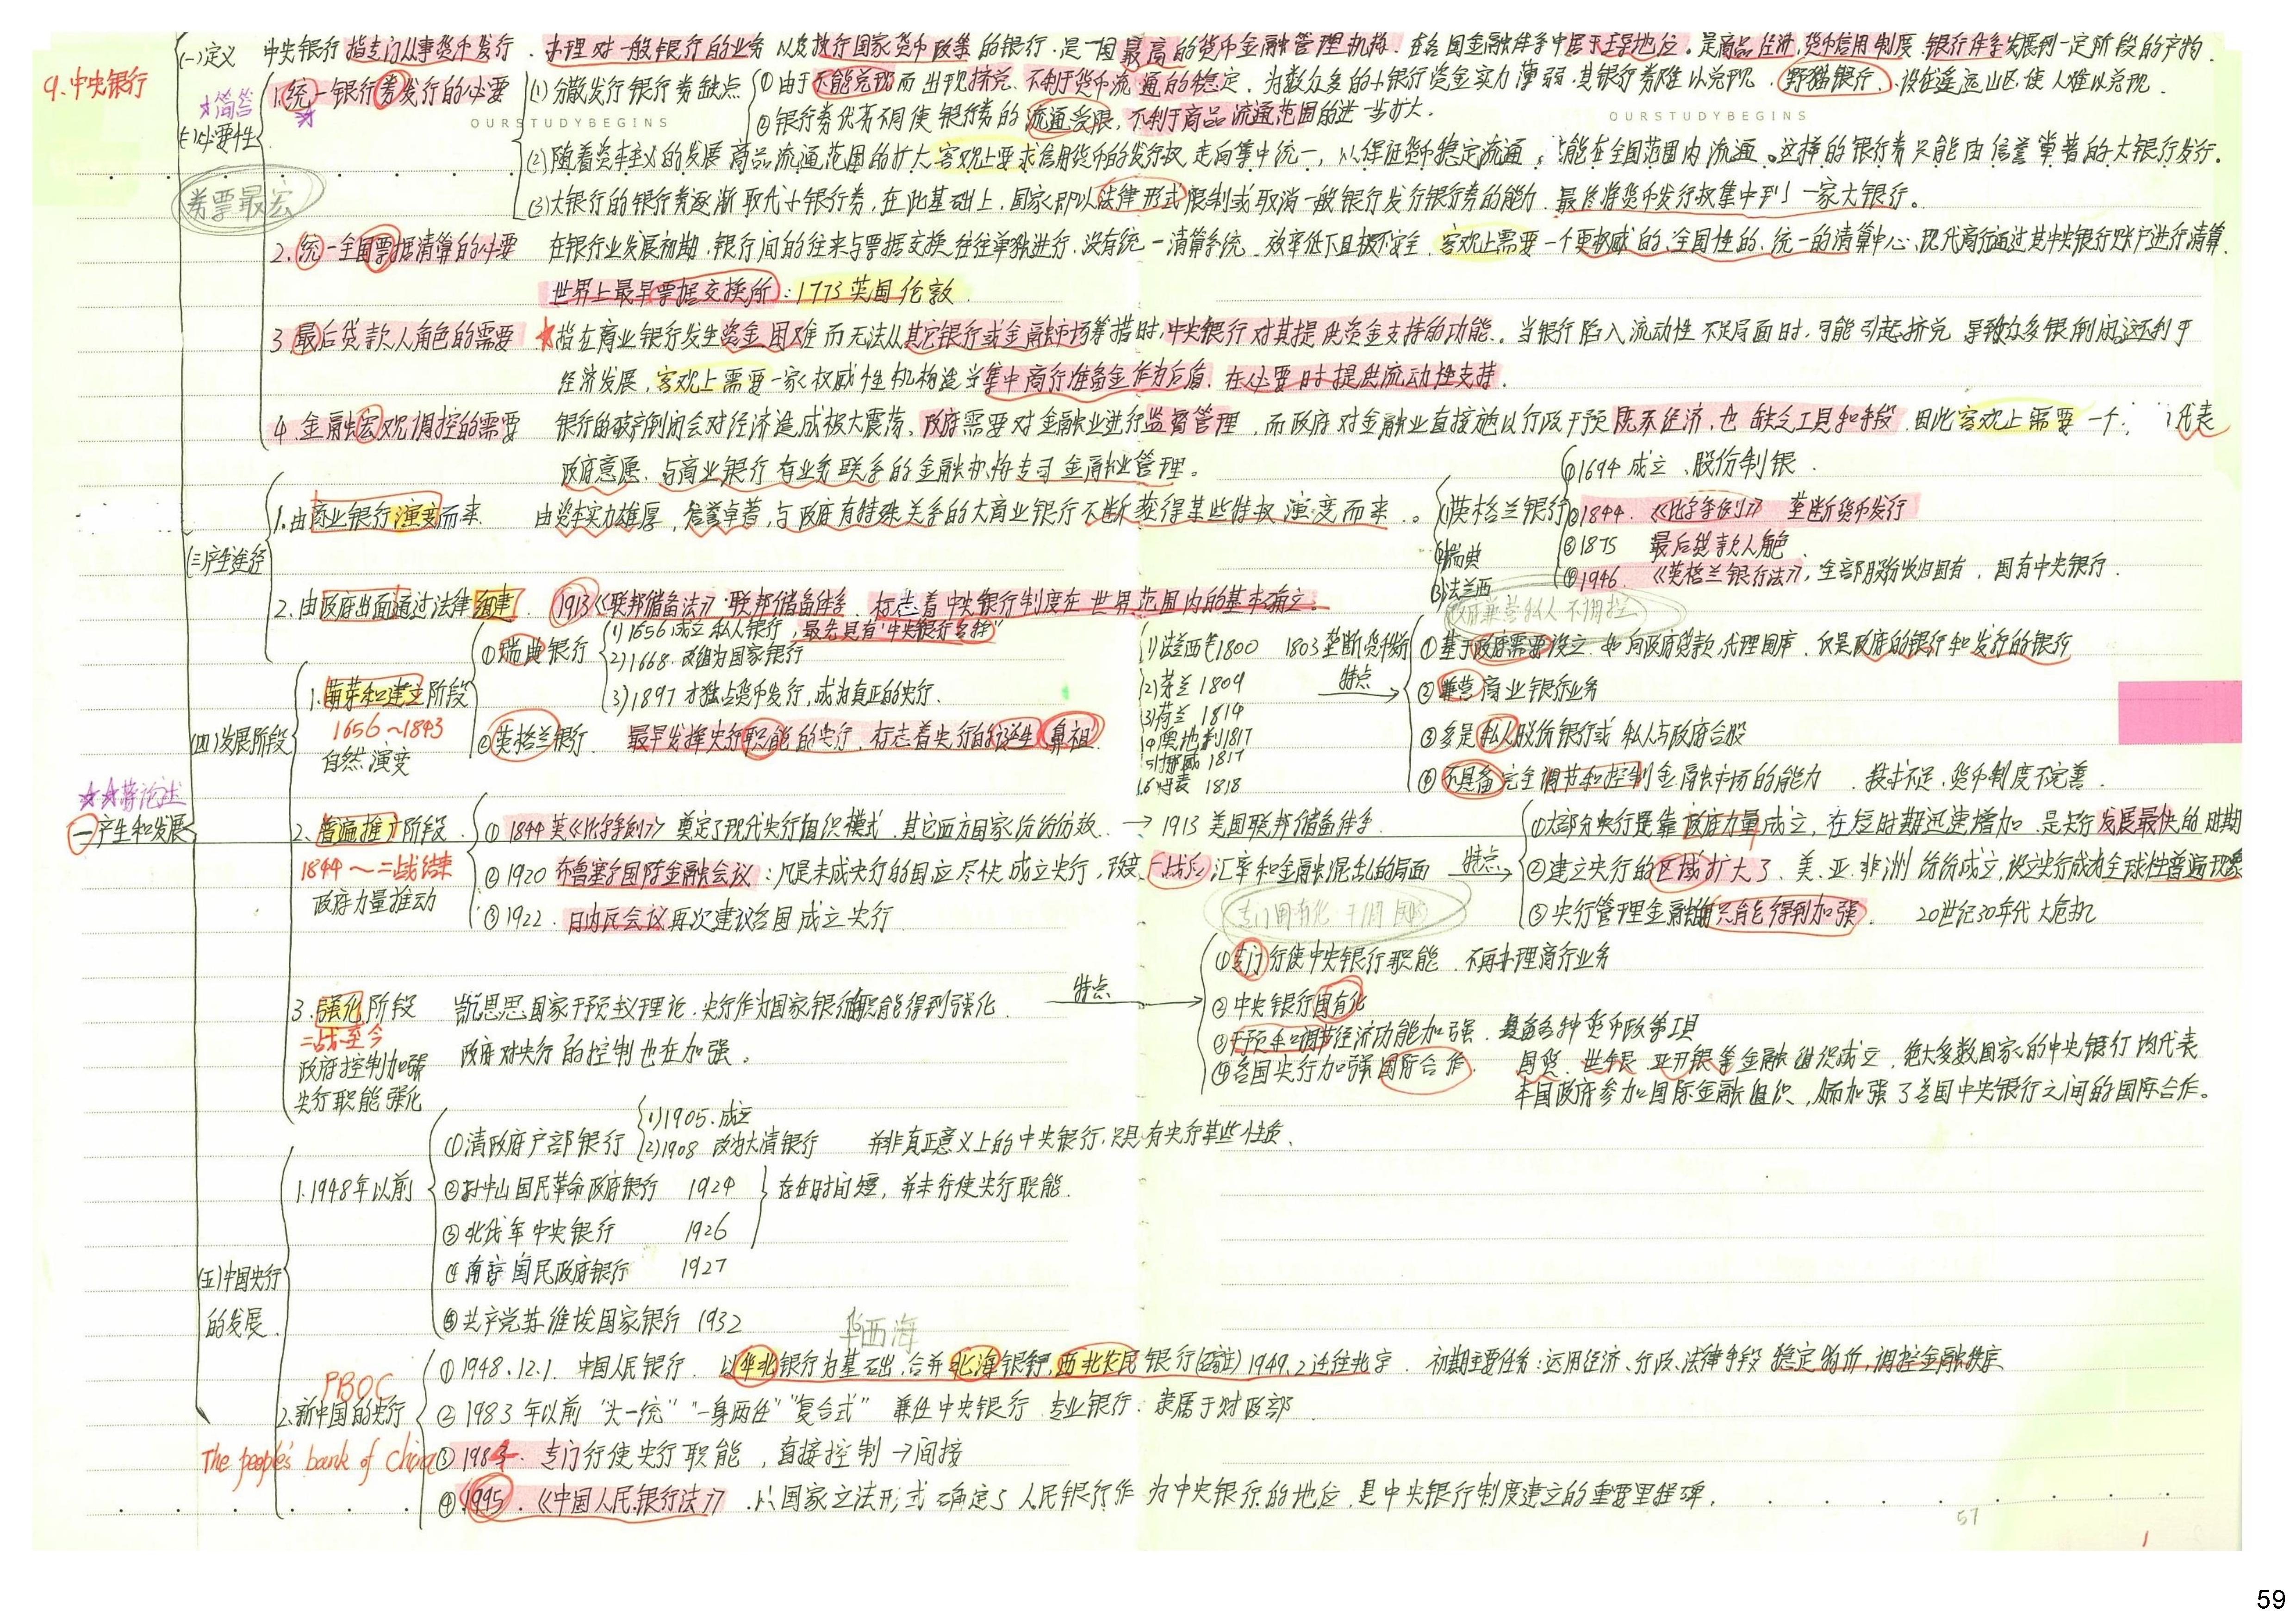 9.中央银行
(一)定义 中央银行指专门从事货币发行、办理对一般银行的业务以及执行国家货币政策的银行,是一国最高的货币金融管理机构,在各国金融体系中居于主导地位。是商品经济、货币信用制度、银行体系发展到一定阶段的产物.
(二)必要性
简答
券票最宏
1.统一银行券发行的必要
(1)分散发行银行券缺点
①由于不能兑现而出现挤兑.不利于货币流通的稳定,为数众多的小银行资金实力薄弱.其银行券难以兑现.野猫银行,设在遥远山区使人难以兑现.
②银行券优劣不同使银行券的流通受限,不利于商品流通范围的进一步扩大.
OURSTUDYBEGINS
OURSTUDYBEGINS
(2)随着资本主义的发展 商品流通范围的扩大 客观上要求信用货币的发行权走向集中统一,以保证货币稳定流通,能在全国范围内流通。这样的银行券只能由信誉卓著的大银行发行.
(3)大银行的银行券逐渐取代小银行券,在此基础上,国家即以法律形式限制或取消一般银行发行银行券的能力,最终将货币发行权集中到一家大银行。
2.统一全国票据清算的必要 在银行业发展初期.银行间的往来与票据交换往往单独进行.没有统一清算系统.效率低下且极不安全.客观上需要一个更权威的、全国性的、统一的清算中心、现代商行通过其中央银行账户进行清算.
世界上最早票据交换所:1773英国伦敦.
3.最后贷款人角色的需要 ★指在商业银行发生资金困难而无法从其它银行或金融市场筹措时,中央银行对其提供资金支持的功能.当银行陷入流动性不足局面时,可能引起挤兑 导致众多银倒闭,这不利于
经济发展,客观上需要一家权威性机构适当集中商行准备金作为后盾.在必要时提供流动性支持.
4.金融宏观调控的需要 银行的破产倒闭会对经济造成极大震荡、政府需要对金融业进行监督管理,而政府对金融业直接施以行政干预既不经济,也缺乏工具和手段.因此客观上需要一个 代表
政府意愿、与商业银行有业务联系的金融机构专司金融业管理。
(三)产生途径
1.由商业银行演变而来. 由资本实力雄厚,信誉卓著,与政府有特殊关系的大商业银行不断获得某些特权演变而来。
(1)英格兰银行
①1694 成立、股份制银.
②1844.《比尔条例》 垄断货币发行
③1875 最后贷款人角色
④1946.《英格兰银行法》,全部股份收归国有,国有中央银行.
(2)瑞典
(3)法兰西
2.由政府出面通过法律组建. 1913《联邦储备法》.联邦储备体系.标志着中央银行制度在世界范围内的基本确立.
政府兼营私人不调控
一产生和发展
★★荐论述
(四)发展阶段
1.萌芽和建立阶段
1656~1843
自然演变
①瑞典银行
(1)1656成立私人银行,最先具有"中央银行名称"
(2)1668.改组为国家银行
(3)1897才独占货币发行,成为真正的央行.
②英格兰银行. 最早发挥央行职能的央行,标志着央行的诞生 鼻祖
(1)法兰西 1800 1803垄断货币
(2)芬兰 1809
(3)荷兰 1814
(4)奥地利 1817
(5)挪威 1817
(6)丹麦 1818
特点
①基于政府需要设立.如向政府贷款,代理国库.仅是政府的银行和发行的银行
②兼营商业银行业务
③多是私人股份银行或私人与政府合股
④不具备完全调节和控制金融市场的能力 技术不足.货币制度不完善.
2.普遍推广阶段
1844~二战结束
政府力量推动
①1844英《比尔条例》奠定了现代央行组织模式.其它西方国家纷纷仿效.→1913美国联邦储备体系.
②1920布鲁塞尔国际金融会议:凡是未成央行的国应尽快成立央行,改变一战后汇率和金融混乱的局面
③1922.日内瓦会议再次建议各国成立央行
特点
①大部分央行是靠政府力量成立,在短时期迅速增加.是央行发展最快的时期
②建立央行的区域扩大了.美、亚、非洲纷纷成立,设立央行成为全球性普遍现象
③央行管理金融的职能得到加强. 20世纪30年代大危机
专门国有化 干调 国际
3.强化阶段
二战至今
政府控制加强
央行职能强化
凯恩思国家干预主义理论.央行作为国家银行的职能得到强化.
政府对央行的控制也在加强。
特点
①专门行使中央银行职能 不再办理商行业务
②中央银行国有化
③干预和调节经济功能加强.具备各种货币政策工具
④各国央行加强国际合作. 国货、世银、亚开银等金融组织成立,绝大多数国家的中央银行均代表
本国政府参加国际金融组织,从而加强了各国中央银行之间的国际合作。
(五)中国央行的发展
1.1948年以前
①清政府户部银行
(1)1905.成立
(2)1908 改为大清银行 并非真正意义上的中央银行,只具有央行某些性质.
②孙中山国民革命政府银行 1924
③北伐军中央银行 1926
存在时间短,并未行使央行职能.
④南京国民政府银行 1927
⑤共产党苏维埃国家银行 1932
华西海
2.新中国的央行
PBOC
The people's bank of China
①1948.12.1. 中国人民银行. 以华北银行为基础,合并北海银行,西北农民银行(石家庄)1949.2迁往北京. 初期主要任务:运用经济、行政、法律手段稳定物价,调控金融秩序
②1983年以前"大一统""一身两任""复合式" 兼任中央银行、专业银行.隶属于财政部
③1984.专门行使央行职能,直接控制→间接
④1995.《中国人民银行法》.以国家立法形式确定了人民银行作为中央银行的地位.是中央银行制度建立的重要里程碑.
57
1
59